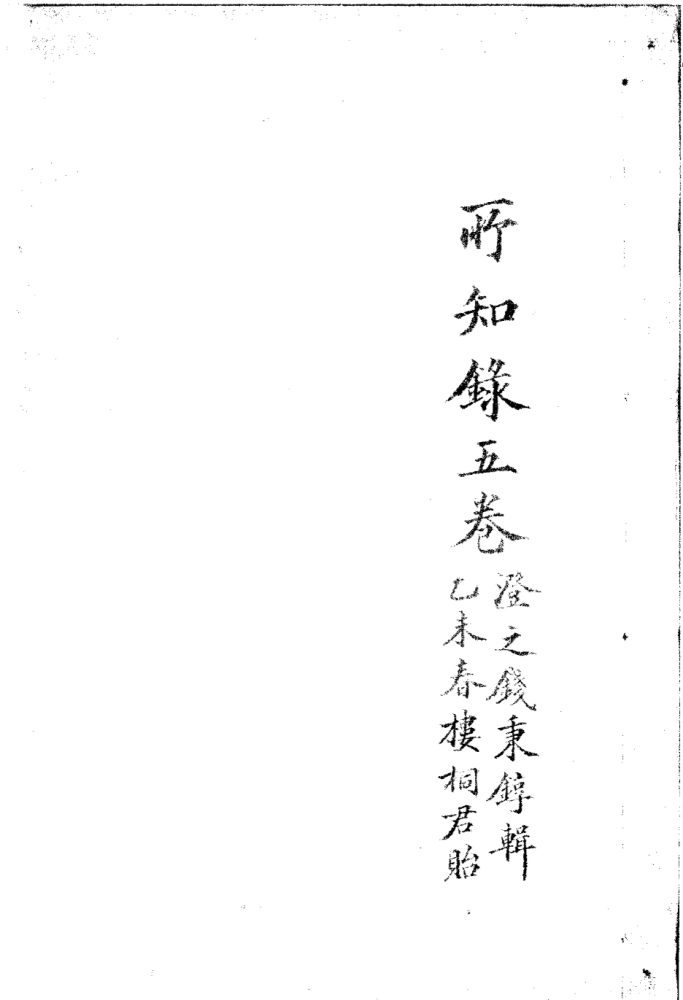 所知錄五卷
澄之錢秉鐸輯
乙未春樓桐君貽